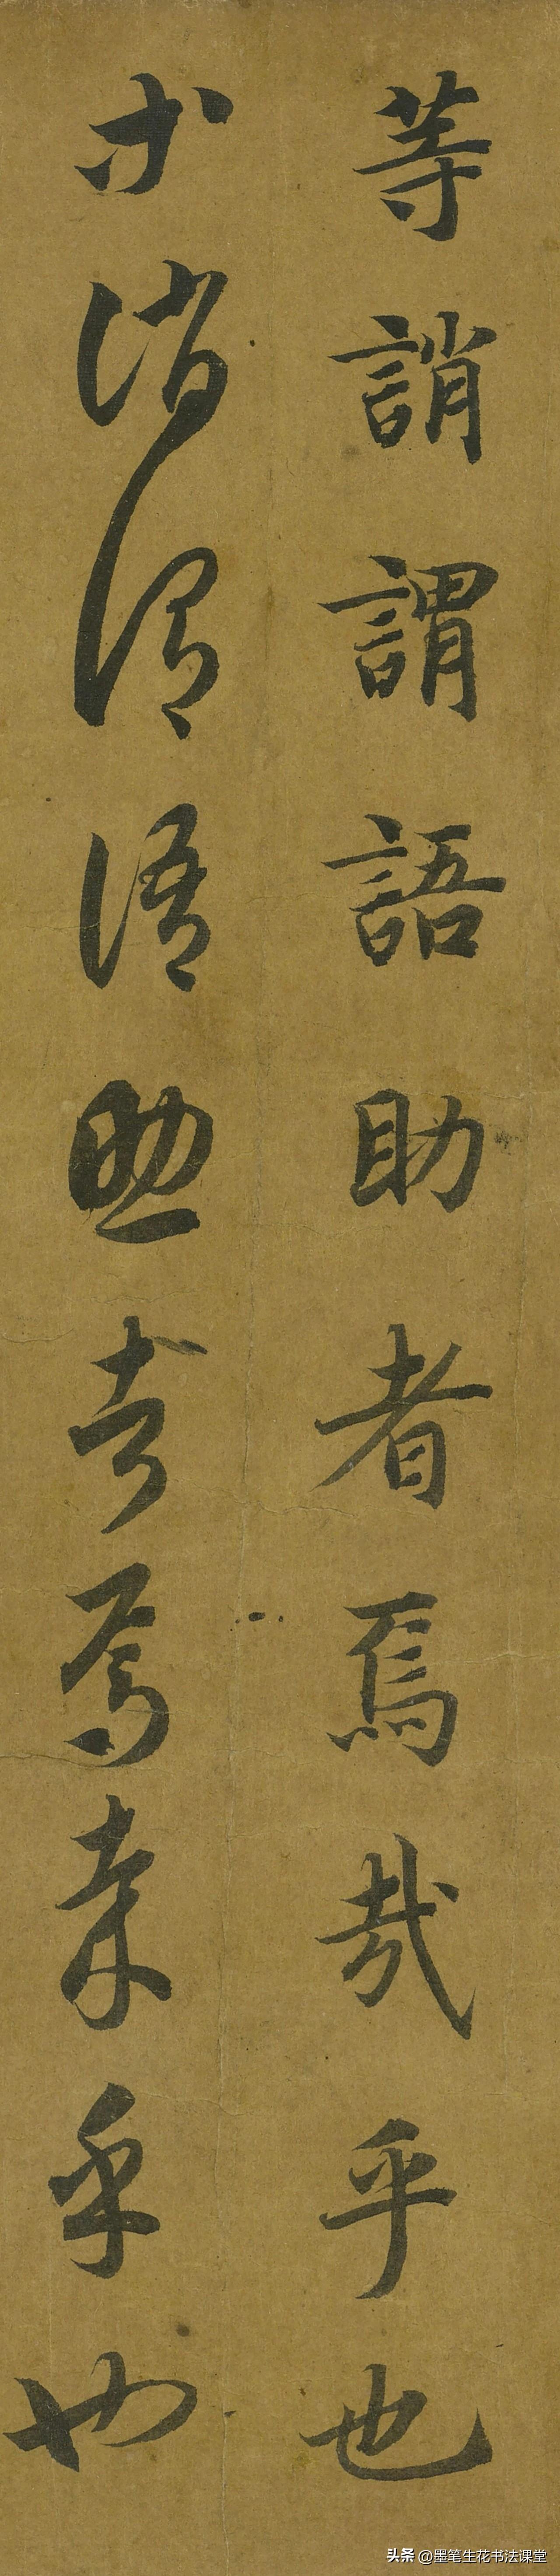 等誚謂語助者焉哉乎也
等誚謂語助者焉哉乎也
头条 @墨笔生花书法课堂